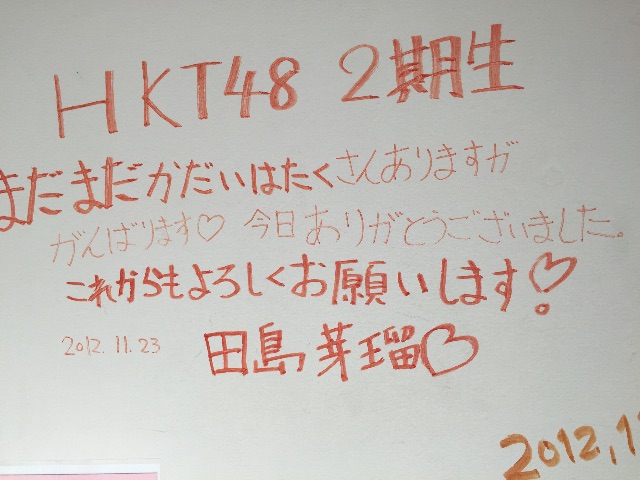 HKT48 2期生
まだまだかだいはたくさんありますが
がんばります♡ 今日ありがとうございました。
これからもよろしくお願いします♡
2012.11.23 田島芽瑠♡
2012,1